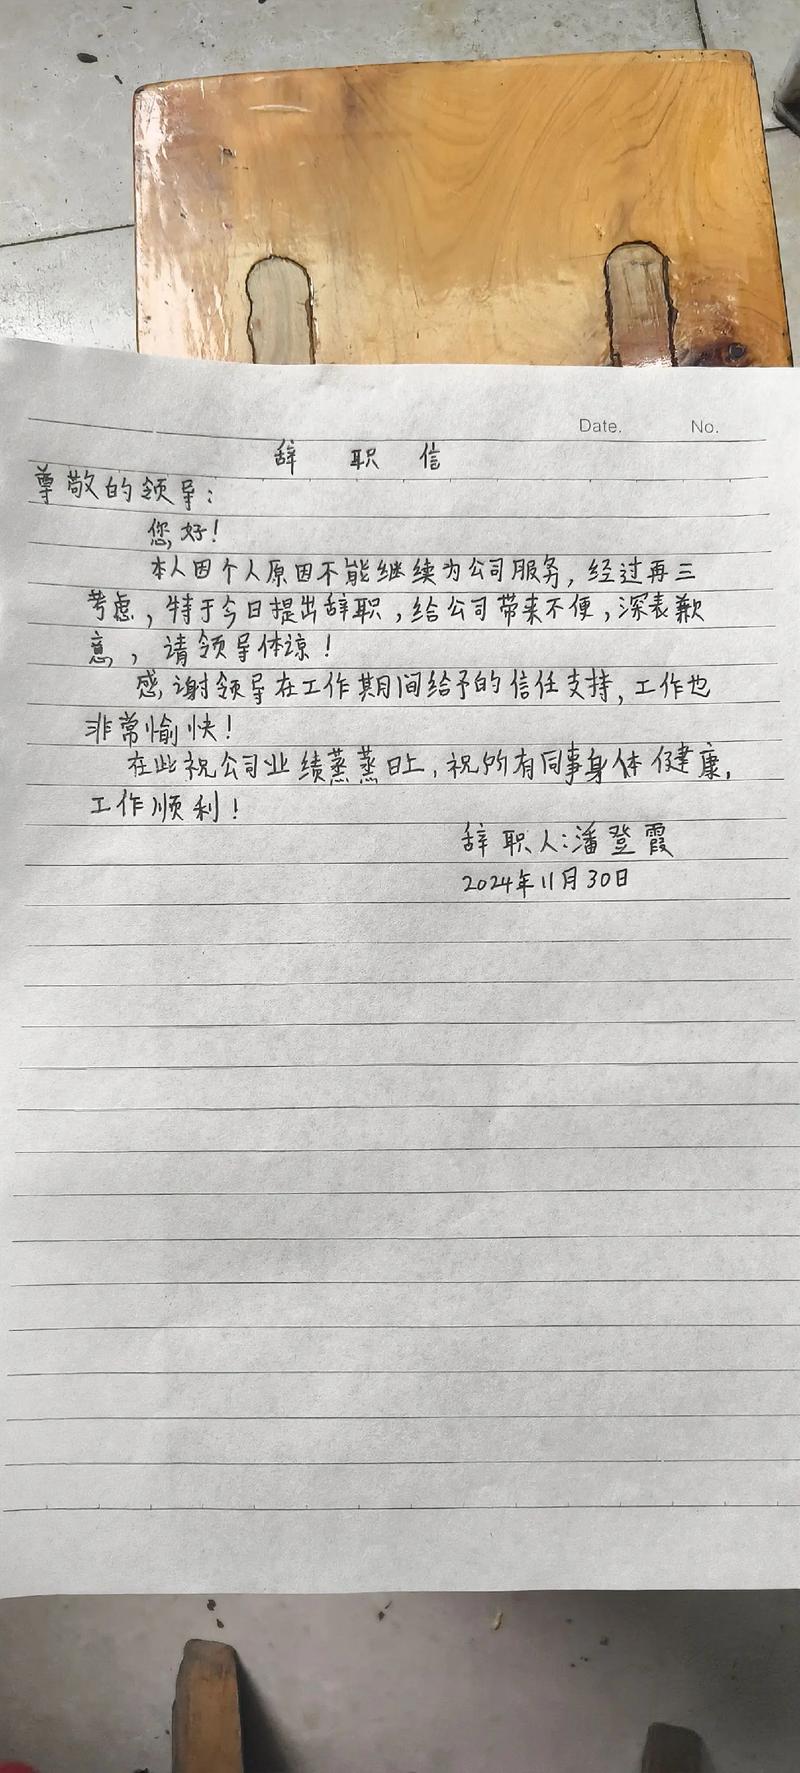 Date. No.
辞 职 信
尊敬的领导：
您好！
本人因个人原因不能继续为公司服务，经过再三
考虑，特于今日提出辞职，给公司带来不便，深表歉
意，请领导体谅！
感谢领导在工作期间给予的信任支持，工作也
非常愉快！
在此祝公司业绩蒸蒸日上，祝所有同事身体健康，
工作顺利！
辞职人：潘登霞
2024年11月30日